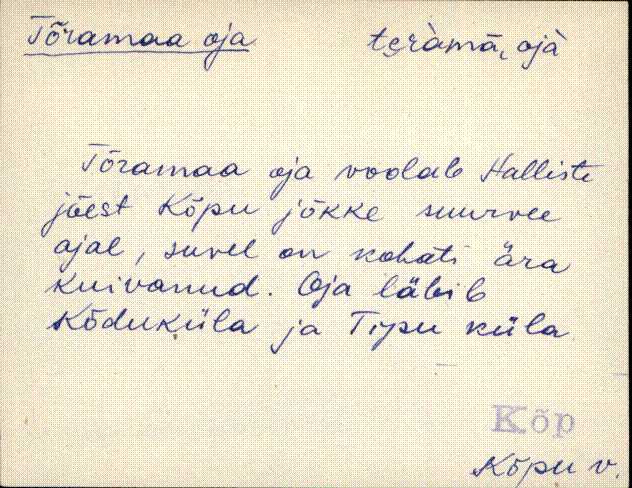 Tõramaa oja  te̮ràmā, ojà
Tõramaa oja voolab Halliste
jõest Kõpu jõkke suurvee
ajal, suvel on kohati ära
kuivanud. Oja läbib
Kõduküla ja Tipu küla
Kõp
Kõpu v.